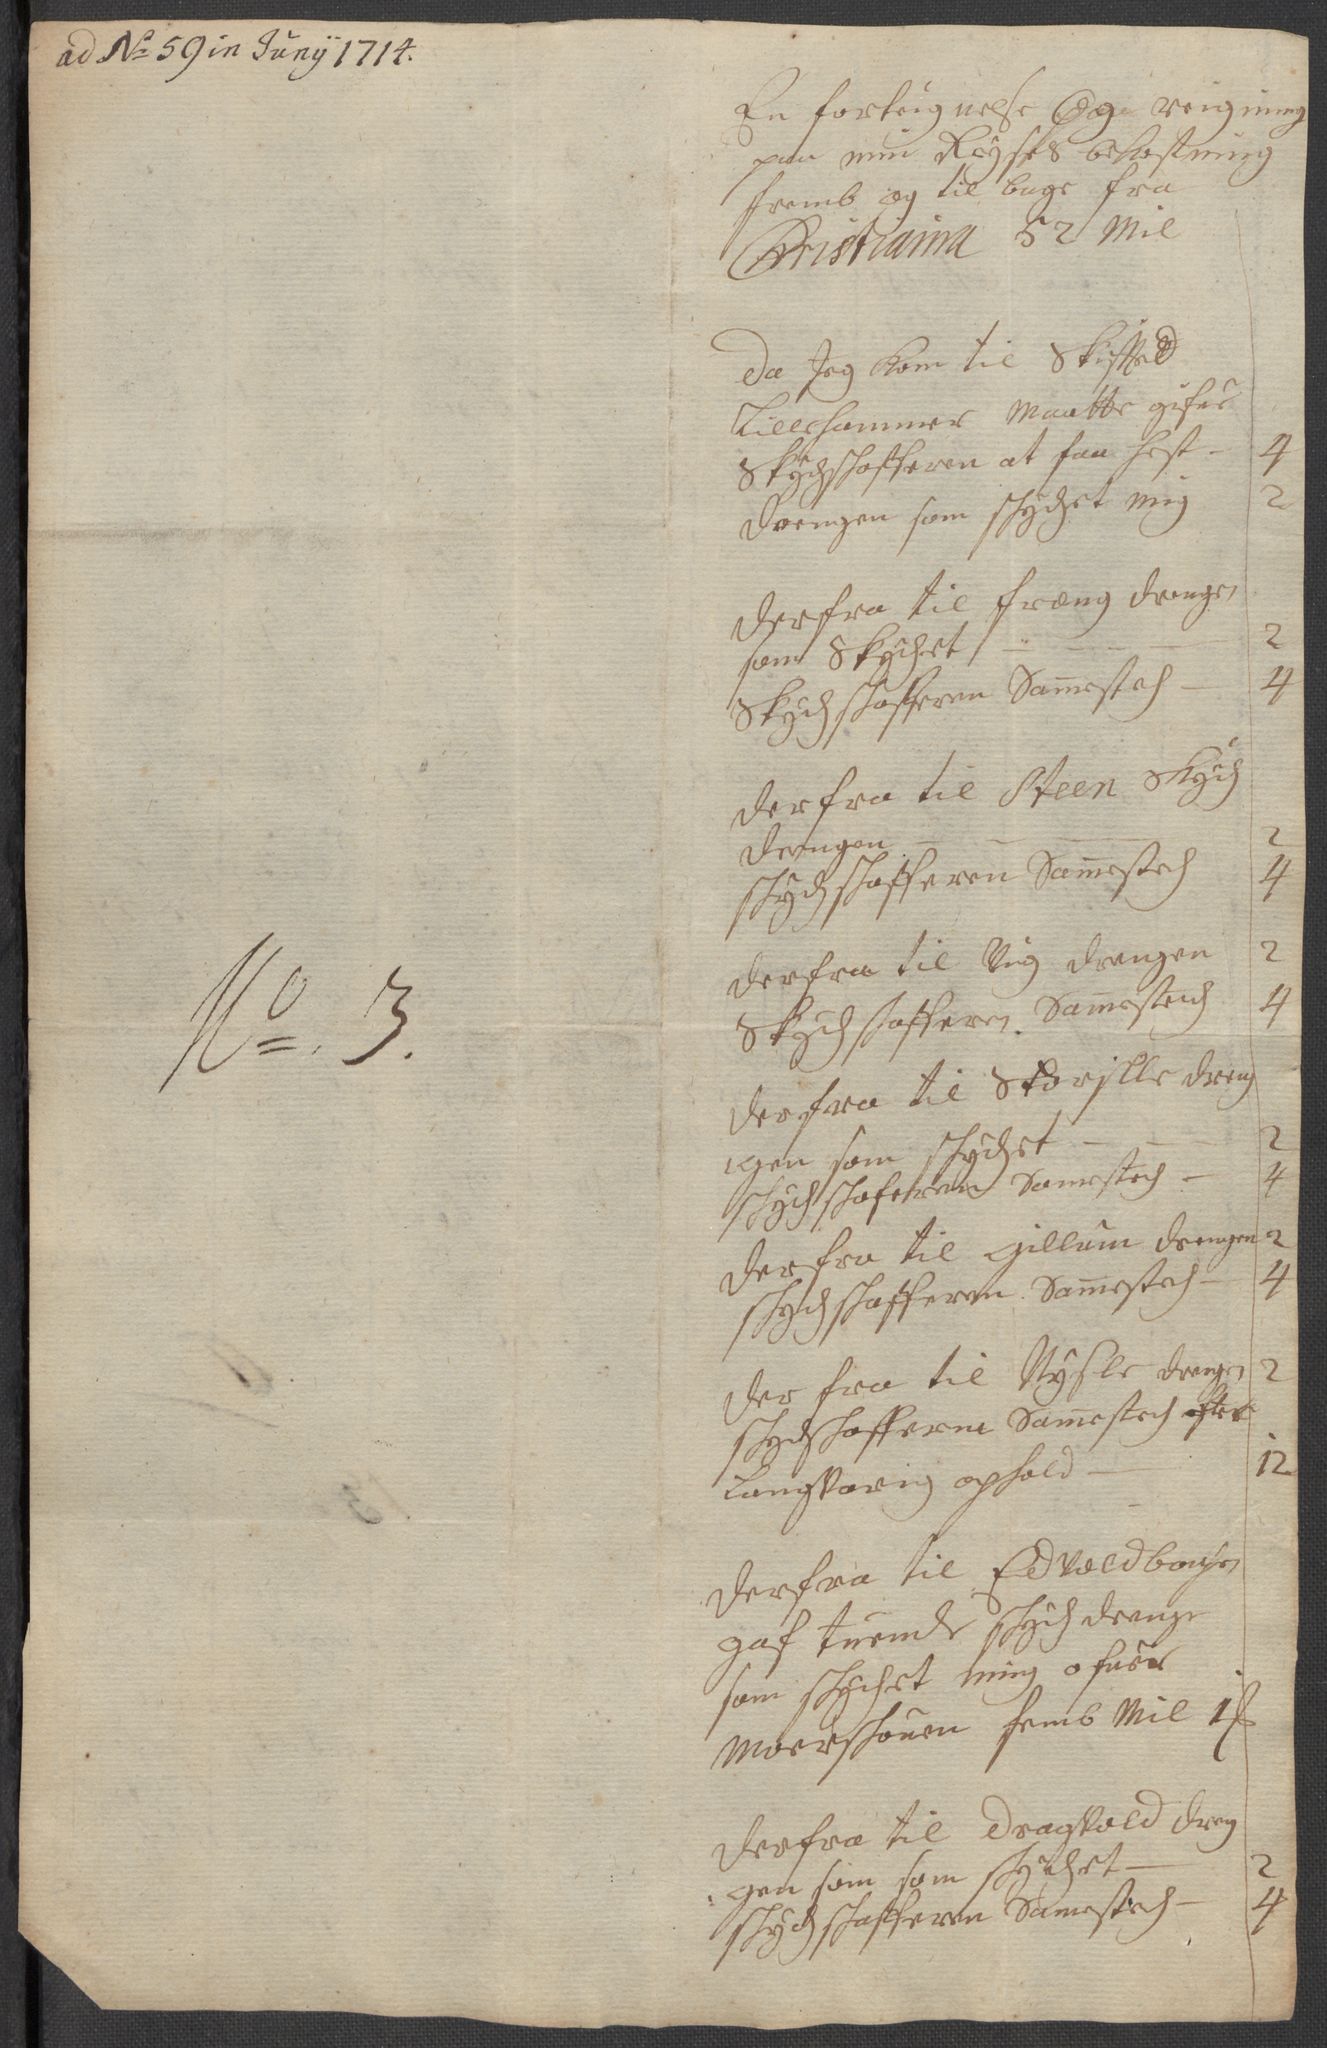 ad No 59 in Junÿ 1714.
En forteignelse Og reigning
paa min Reÿses bekostning
fremb og til bage fra
Christiania 52 Mil
Da Jeg kom til Skifftet
Lillehammer Maatte gifue
Skÿdsskafferen at faa hest - 4
drengen som skÿdset mig 2
derfra til fræng drengen
som Skÿdset - - - - 2
Skÿdsskafferen Sam̄ested - 4
derfra til Steen Skÿds
drengen - - - 2
skÿdsskafferen Sam̄ested 4
derfra til Viig drengen 2
Skÿdsskafferen Sam̄ested 4
derfra til dreng
gen som skÿdset - - 2
skÿdsskaferen Samested - 4
derfra til Gillum drengen 2
skÿdsskafferen Sam̄ested - 4
der fra til drengen 2
skÿdsskafferen Sam̄ested efter
Langvarig ophold - 12
derfra til Edvold
gaf tuende skÿds drenge
som skÿdset mig ofuer
Moerskouen femb Mil
derfra til Dragvold dreng
gen som som skÿdset - 2
skÿdsskafferen Samested - 4
No. 3.